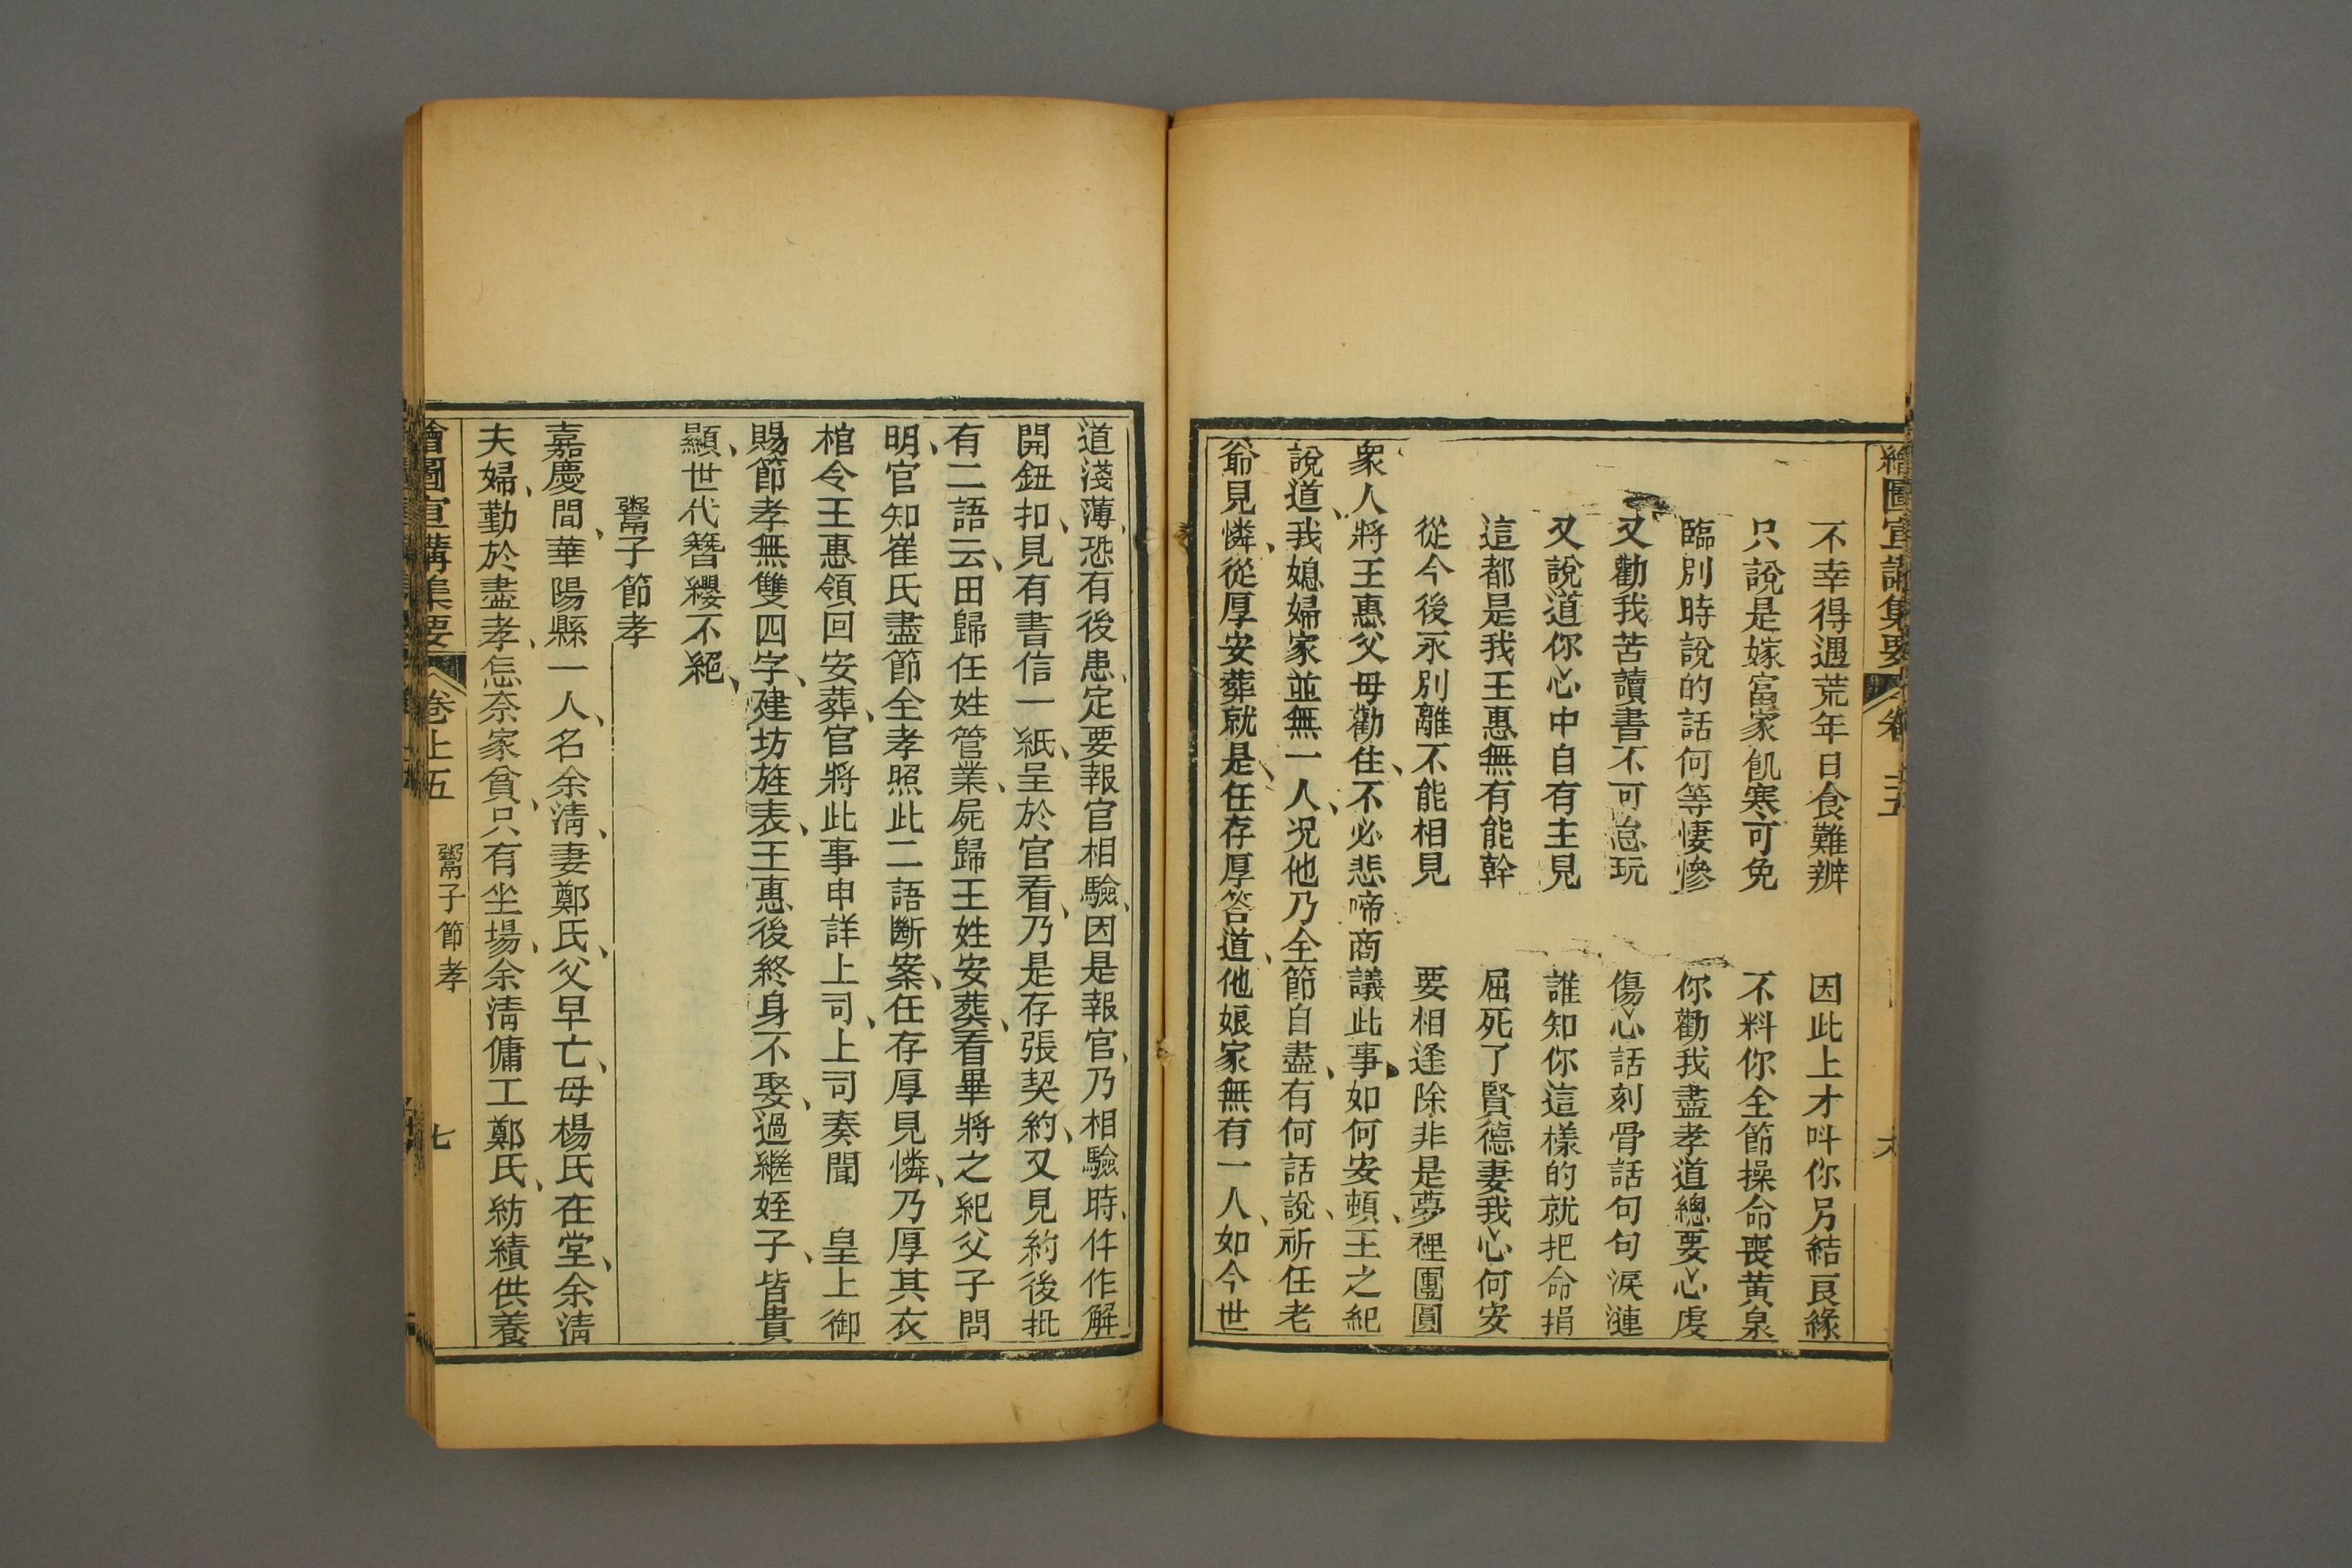 繪圖宣講集要 卷上五 六
不幸得遇荒年日食難辦 因此上才呌你另結良緣
只說是嫁富家飢寒可免 不料你全節操命喪黃泉
臨別時說的話何等悽慘 你勸我盡孝道總要心虔
又勸我苦讀書不可怠玩 傷心話刻骨話句句淚漣
又說道你心中自有主見 誰知你這樣的就把命捐
這都是我王惠無有能幹 屈死了賢德妻我心何安
從今後永別離不能相見 要相逢除非是夢裡團圓
衆人將王惠父母勸住、不必悲啼商議此事、如何安頓、王之紀
說道、我媳婦家並無一人、况他乃全節自盡、有何話說、祈任老
爺見憐、從厚安葬就是、任存厚答道、他娘家無有一人、如今世
道淺薄、恐有後患、定要報官相驗、因是報官、乃相驗時、仵作解
開鈕扣、見有書信一紙、呈於官看、乃是存張契約、又見約後批
有二語云、田歸任姓管業、屍歸王姓安葬、看畢將之紀父子問
明、官知崔氏盡節全孝照此二語斷案、任存厚見憐、乃厚其衣
棺令王惠領回安葬、官將此事申詳上司、上司奏聞 皇上御
賜節孝無雙四字、建坊旌表、王惠後終身不娶、過繼姪子、皆貴
顯、世代簪纓不絕、
鬻子節孝
嘉慶間、華陽縣一人、名余淸、妻鄭氏、父早亡、母楊氏在堂、余淸
夫婦、勤於盡孝、怎奈家貧、只有坐塲、余淸傭工鄭氏、紡績供養
繪圖宣講集要 卷上五 鬻子節孝 七